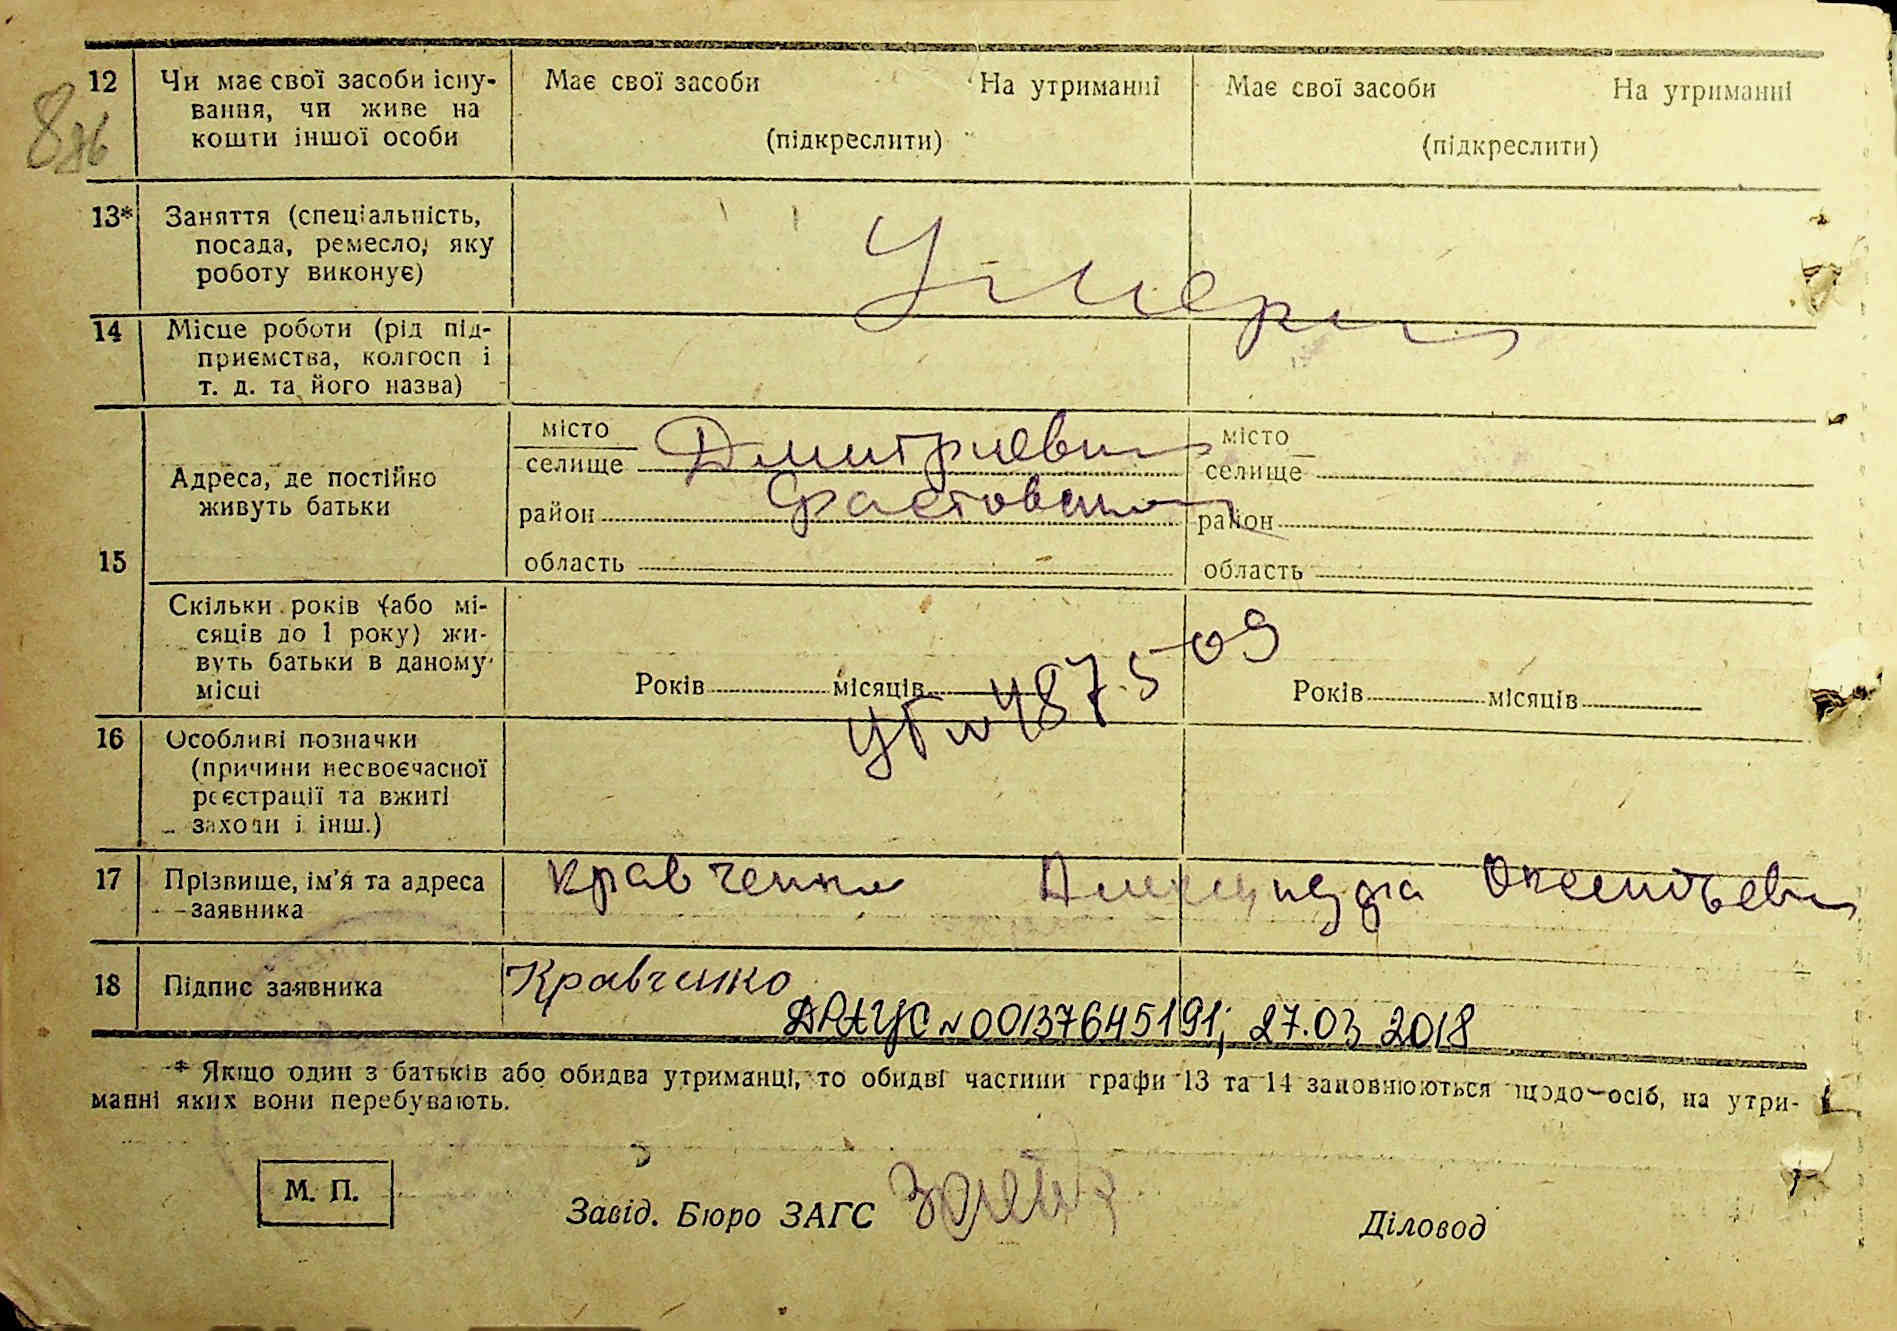 12 Чи має свої засоби існу-
вання, чи живе на
кошти іншої особи
Має свої засоби На утриманні
(підкреслити)
Має свої засоби На утриманні
(підкреслити)
13* Заняття (спеціальність,
посада, ремесло, яку
роботу виконує)
14 Місце роботи (рід під-
приємства, колгосп і
т. д. та його назва)
15 Адреса, де постійно
живуть батьки
місто
селище Дмитриевка
район Фастовский
область
місто
селище
район
область
Скільки років (або мі-
сяців до 1 року) жи-
вуть батьки в даному
місці
Років місяців
УБ № 487509
Років місяців
16 Особливі позначки
(причини несвоєчасної
реєстрації та вжиті
заходи і інш.)
17 Прізвище, ім'я та адреса
заявника
Кравченко
18 Підпис заявника Кравченко
ДРАЦС № 00137645191; 27.03 2018
* Якщо один з батьків або обидва утриманці, то обидві частини графи 13 та 14 заповнюються щодо осіб, на утри-
манні яких вони перебувають.
М. П.
Завід. Бюро ЗАГС
Діловод